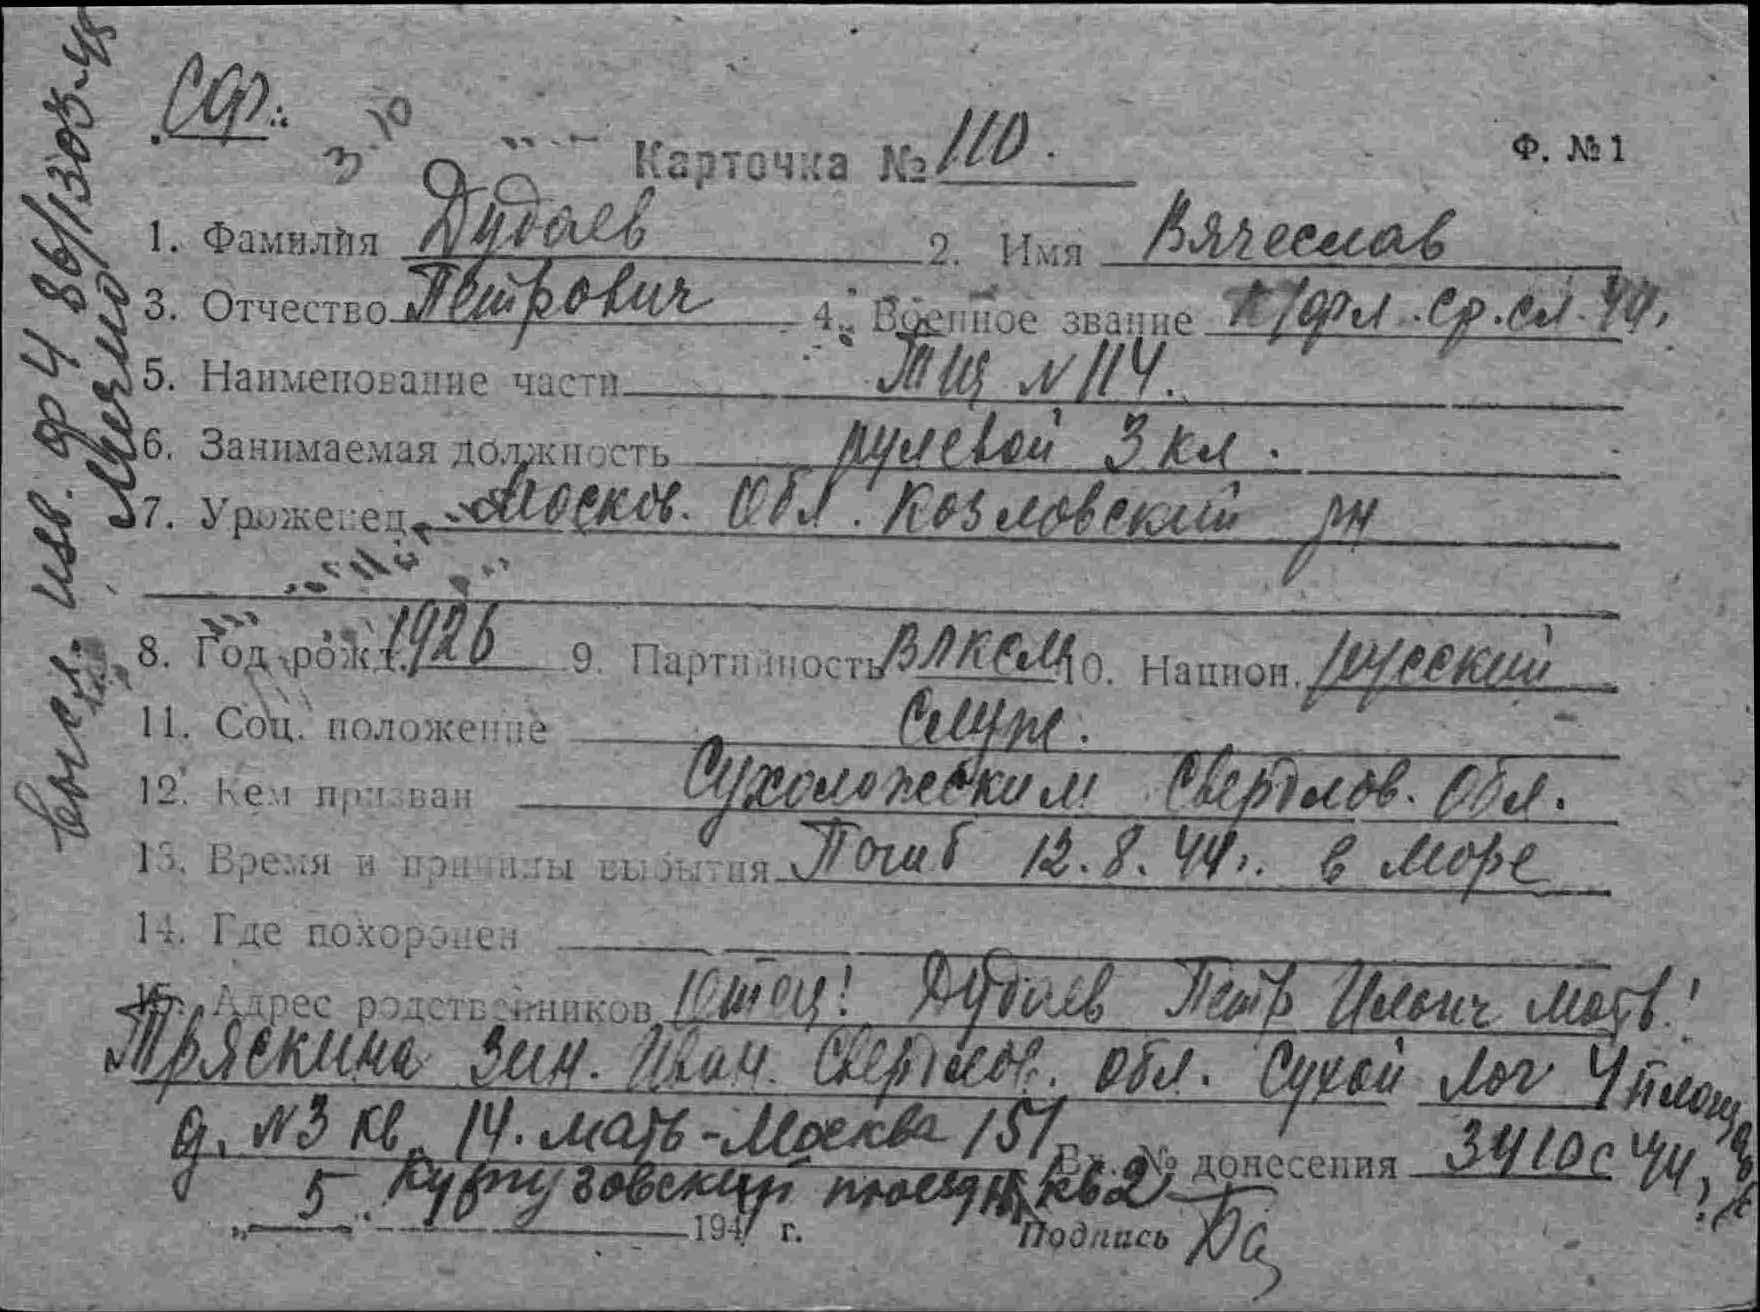 СФ.
3.10
Карточка № 110.
Ф. № 1
1. Фамилия Дудаев 2. Имя Вячеслав
3. Отчество Петрович 4. Военное звание к/фл. ср. сл. 44г.
5. Наименование части ТЩ N 114.
6. Занимаемая должность рулевой 3 кл.
7. Уроженец Москов. Обл. Козловский рн
8. Год рожд. 1926 9. Партийность ВЛКСМ 10. Национ. русский
11. Соц. положение служ.
12. Кем призван Сухоложеским Свердлов. Обл.
13. Время и причины выбытия Погиб 12.8.44г. в море
14. Где похоронен
15. Адрес родственников Отец: Дудаев Петр Ильич мать:
Тряскина Зин. Иван. Свердлов. обл. Сухой Лог 4 площадка
д. N3 кв. 14. мать - Москва 151
Вх. № донесения 3410с 44г.
5 Кутузовский проезд кв 2
194 г. Подпись
Высл. изв. ф 4 86/1303-45